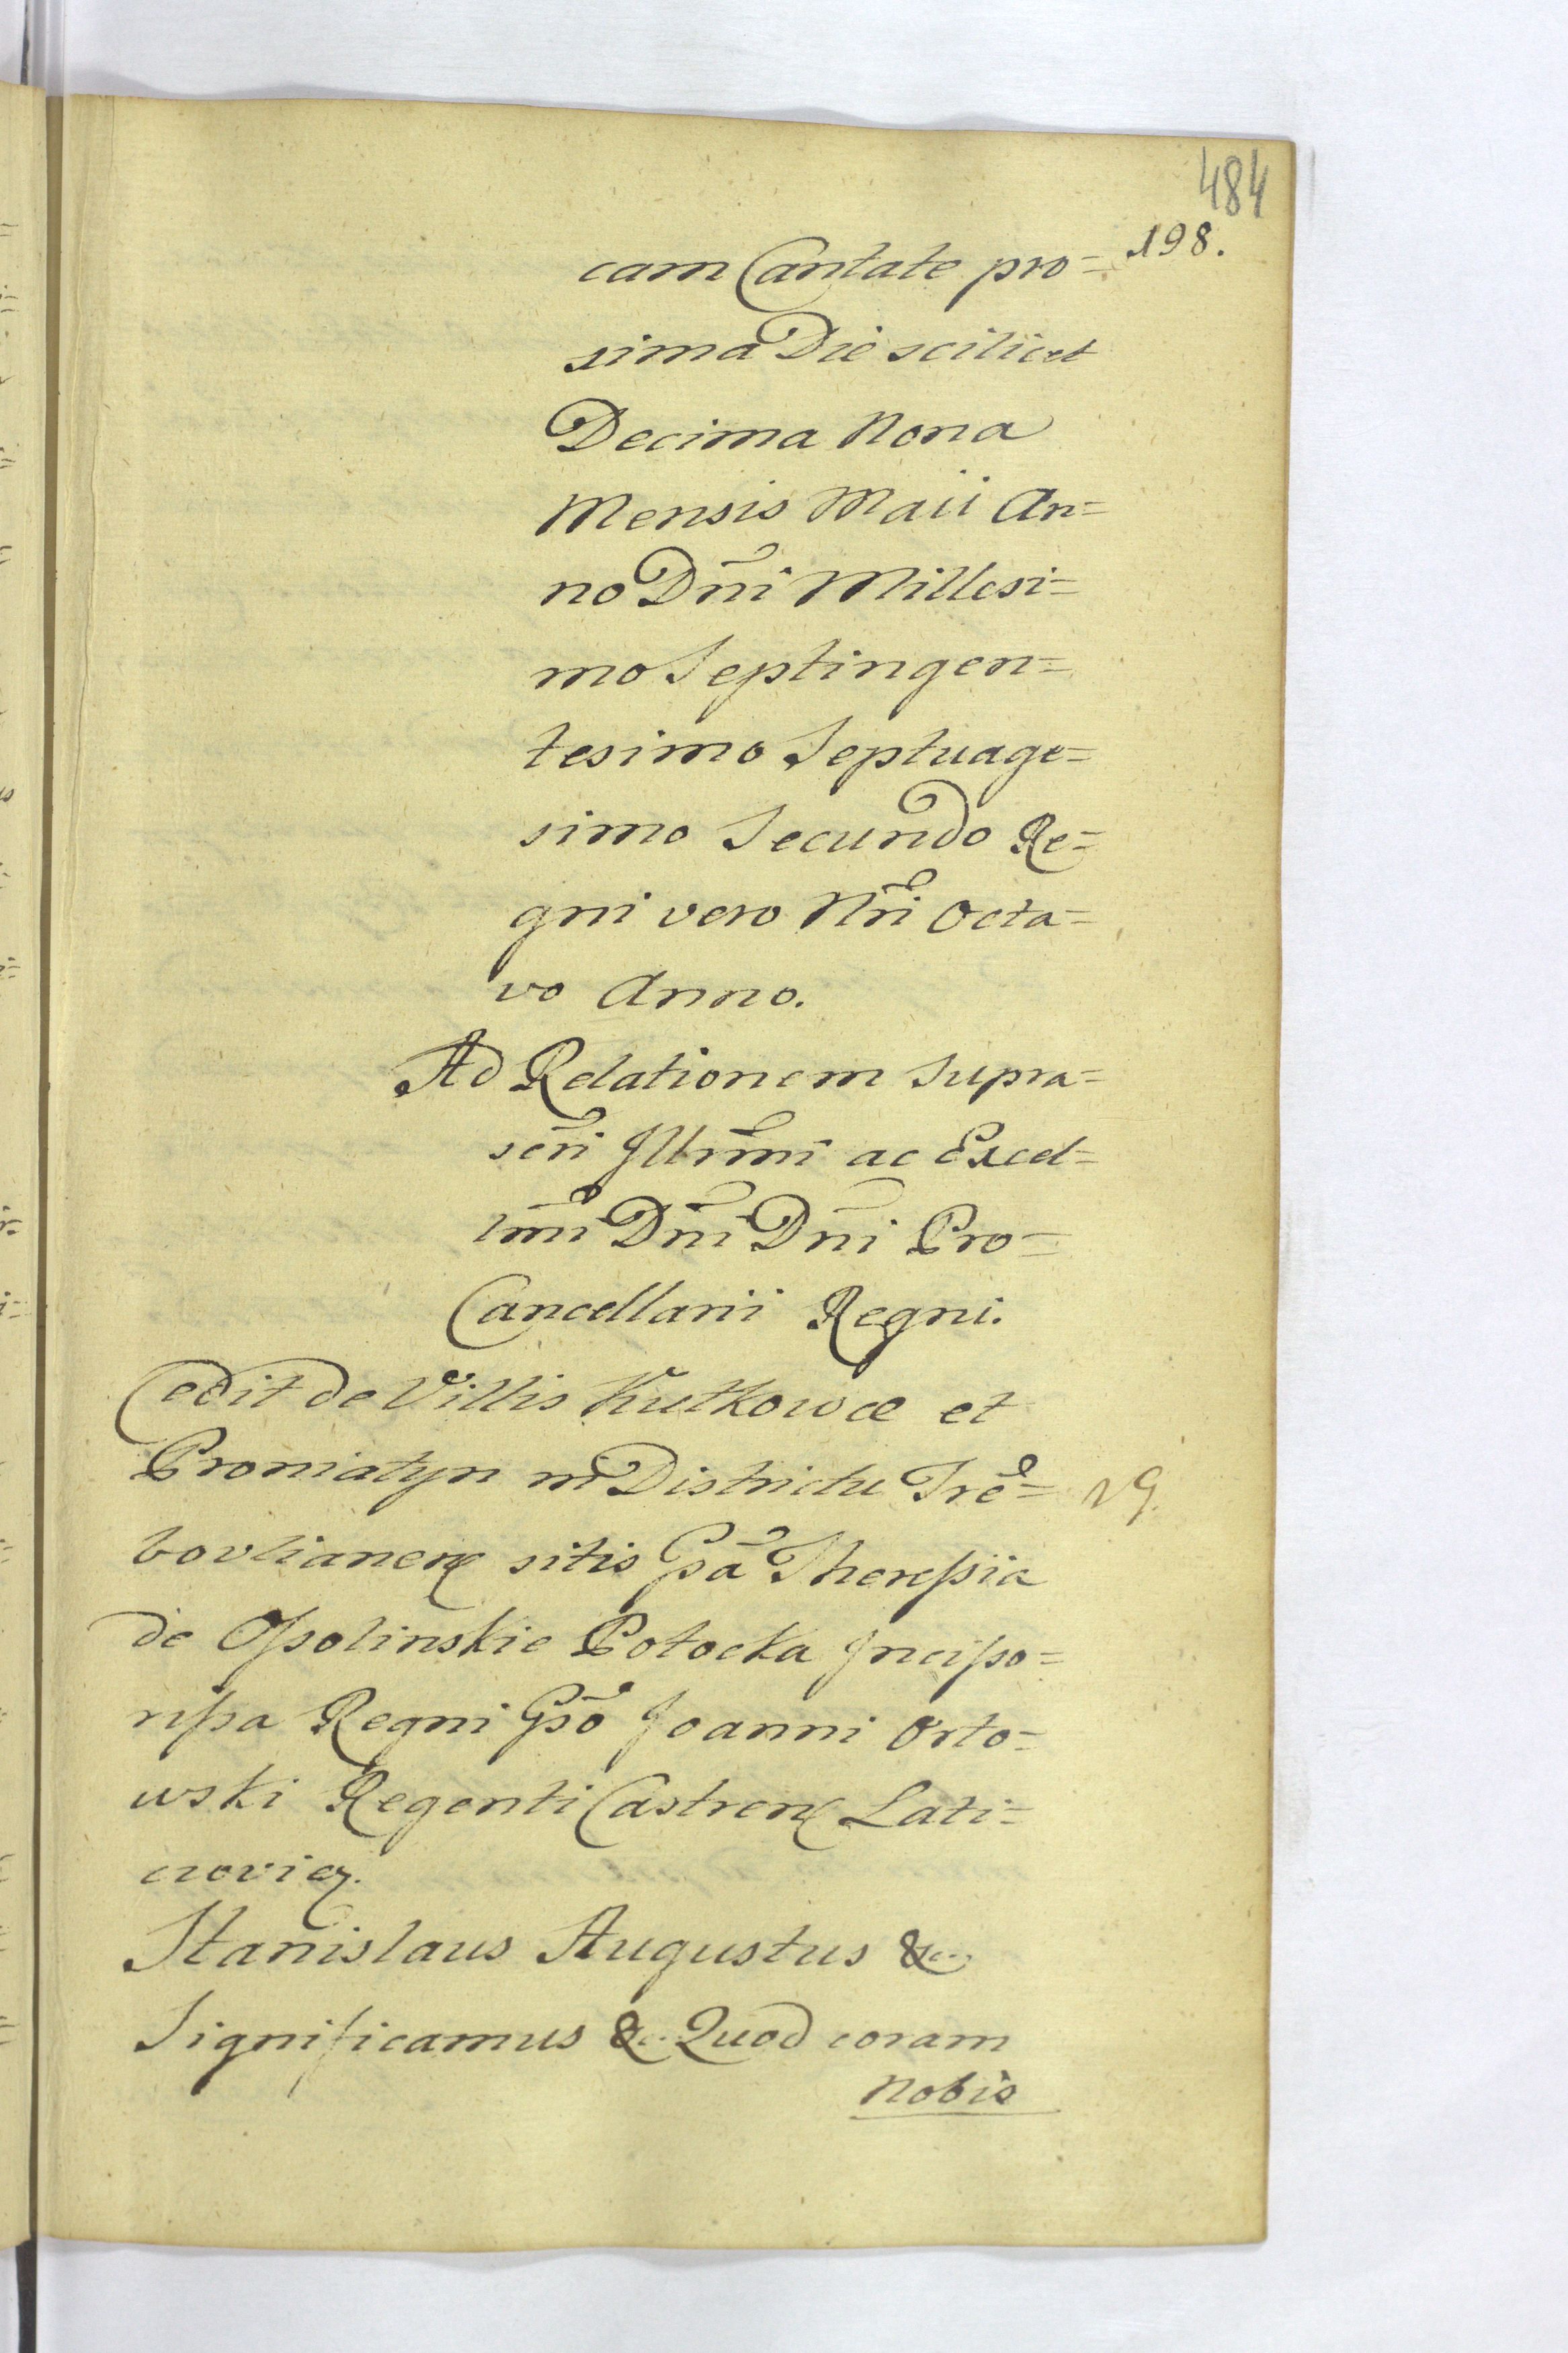 484
198.
cam Cantate pro=
xima Die scilicet
Decima Nona
Mensis Maii An=
no Dñi Millesi=
mo Septingen=
tesimo Septuage=
simo Secundo Re=
gni vero Nri Octa=
vo Anno.
Ad Relationem supra=
scri Illrmi ac Excel=
lmi Dñi Dñi Pro=
Cancellarii Regni.
Cedit de Villis Kutkowce et
Proniatyn in Districtu Tre=
bovlianen sitis Gsa Theressia
de Ossolinskie Potocka Incisso=
rissa Regni Gso Joanni Orło=
wski Regenti Castren Lati=
czovien.
Stanislaus Augustus &c.
Significamus &c. Quod coram
Nobis